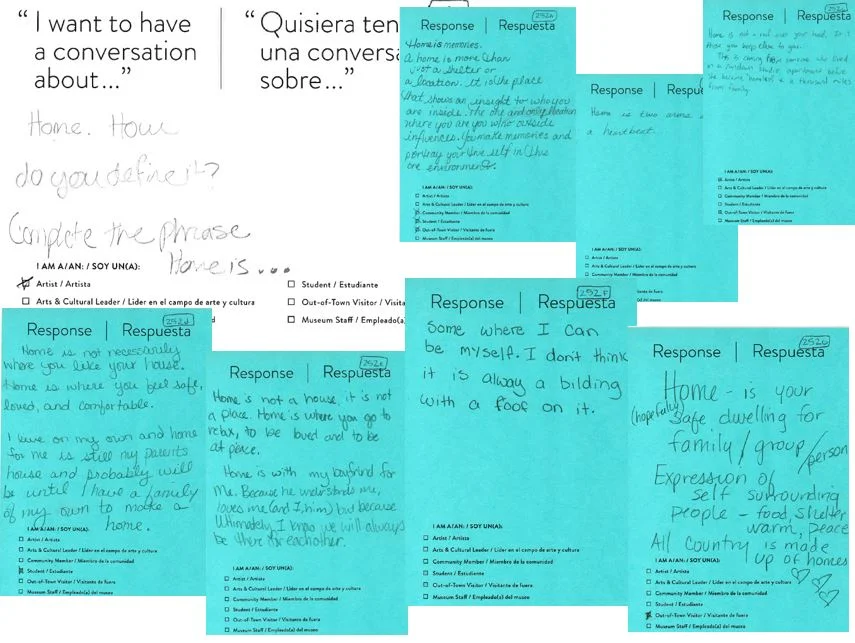 “ I want to have
a conversation
about...”
“ Quisiera ten
una convers
sobre...”
Home. How
do you define it?
Complete the phrase
Home is...
I AM A/AN: / SOY UN(A):
Artist / Artista
Arts & Cultural Leader / Líder en el campo de arte y cultura
Student / Estudiante
Out-of-Town Visitor / Visita
Museum Staff / Empleado(a)
Response | Respuesta
Home is memories.
A home is more than
just a shelter or
a location. It is the place
that shows an insight to who you
are inside. The one and only location
where you are you w/o outside
influences. You make memories and
portray your true self in this
one environment.
I AM A/AN: / SOY UN(A):
Artist / Artista
Arts & Cultural Leader / Líder en el campo de arte y cultura
Community Member / Miembro de la comunidad
Student / Estudiante
Out-of-Town Visitor / Visitante de fuera
Museum Staff / Empleado(a) del museo
Response | Respu
Home is two arms
a heartbeat.
I AM A/AN: / SOY UN(A):
Artist / Artista
Arts & Cultural Leader / Líder en el campo de arte y cultura
Community Member / Miembro de la comunidad
Response | Respuesta
Home is not a roof over your head. It is
those you keep close to you.
This is coming from someone who lived
in a random studio apartment before
she became homeless & a thousand miles
from family.
I AM A/AN: / SOY UN(A):
Artist / Artista
Arts & Cultural Leader / Líder en el campo de arte y cultura
Community Member / Miembro de la comunidad
Student / Estudiante
Out-of-Town Visitor / Visitante de fuera
Museum Staff / Empleado(a) del museo
252d
Response | Respuesta
Home is not necessarily
where you like your house.
Home is where you feel safe,
loved, and comfortable.
I live on my own and home
for me is still my parents
house and probably will
be until I have a family
of my own to make a
home.
I AM A/AN: / SOY UN(A):
Artist / Artista
Arts & Cultural Leader / Líder en el campo de arte y cultura
Community Member / Miembro de la comunidad
Student / Estudiante
Out-of-Town Visitor / Visitante de fuera
Museum Staff / Empleado(a) del museo
252e
Response | Respuesta
Home is not a house, it is not
a place. Home is where you go to
relax, to be loved and to be
at peace.
Home is with my boyfrind for
me. Because he understands me,
loves me (and I, him) but because
Ultimately I know we will always
be there for eachother.
I AM A/AN: / SOY UN(A):
Artist / Artista
Arts & Cultural Leader / Líder en el campo de arte y cultura
Community Member / Miembro de la comunidad
Student / Estudiante
Out-of-Town Visitor / Visitante de fuera
Museum Staff / Empleado(a) del museo
252F
Response | Respuesta
Some where I can
be myself. I don't think
it is alway a bilding
with a foof on it.
I AM A/AN: / SOY UN(A):
Artist / Artista
Arts & Cultural Leader / Líder en el campo de arte y cultura
Community Member / Miembro de la comunidad
Student / Estudiante
Out-of-Town Visitor / Visitante de fuera
Museum Staff / Empleado(a) del museo
252G
Response | Respuesta
Home - is your
(hopefully) safe dwelling for
family/group/person
Expression of
self surrounding
people - food, shelter
warm, peace
All Country is made
up of homes
I AM A/AN: / SOY UN(A):
Artist / Artista
Arts & Cultural Leader / Líder en el campo de arte y cultura
Community Member / Miembro de la comunidad
Student / Estudiante
Out-of-Town Visitor / Visitante de fuera
Museum Staff / Empleado(a) del museo